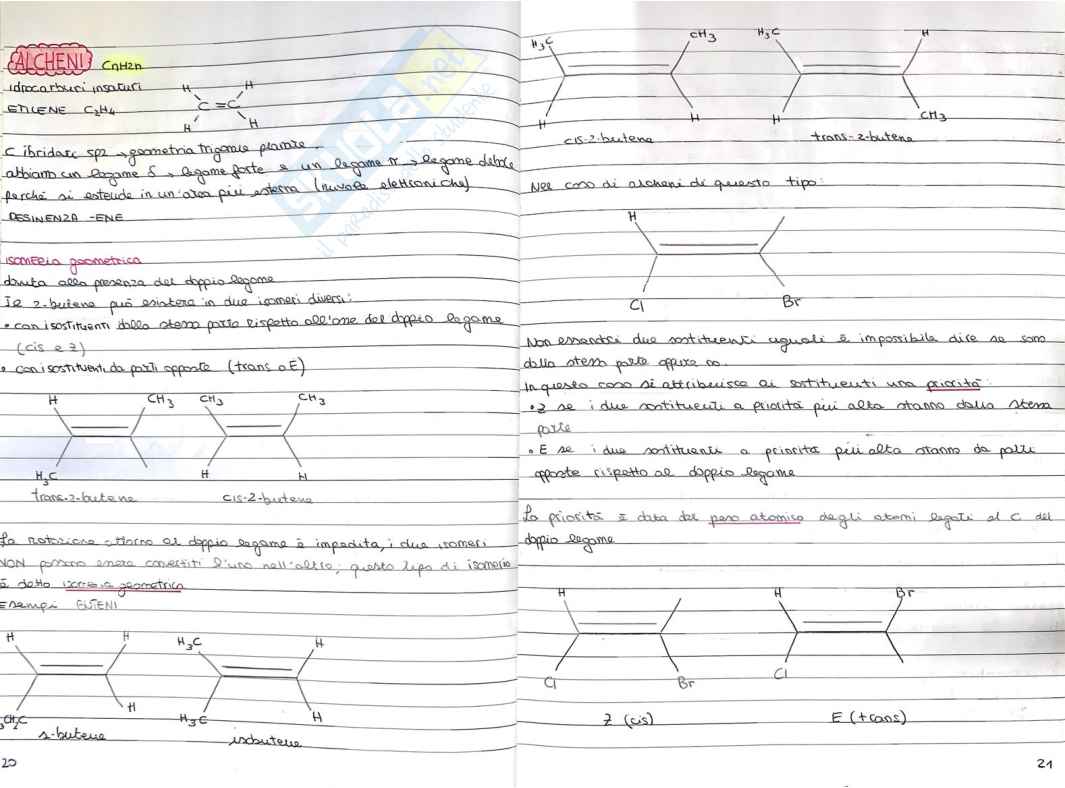 ALCHENI CnH2n
idrocarburi insaturi
ETILENE C2H4
H H
C = C
H H
C ibridati sp2 → geometria trigonale planare
abbiamo un legame δ → legame forte e un legame π → legame debole
perché si estende in un'area più esterna (nuvole elettroniche)
DESINENZA -ENE
isomeria geometrica
dovuta alla presenza del doppio legame
Il 2-butene può esistere in due isomeri diversi:
• con i sostituenti dalla stessa parte rispetto all'asse del doppio legame
(cis e z)
• con i sostituenti da parti opposte (trans o E)
H CH3 CH3 CH3
H3C H H
trans-2-butene cis-2-butene
La rotazione attorno al doppio legame è impedita, i due isomeri
NON possono essere convertiti l'uno nell'altro; questo tipo di isomeria
è detto isomeria geometrica
Esempi BUTENI
H H H3C H
H H3C H
3CH2C
1-butene isobutene
20
H3C CH3 H3C H
H H H CH3
cis-2-butene trans-2-butene
Nel caso di alcheni di questo tipo:
H
Cl Br
Non essendoci due sostituenti uguali è impossibile dire se sono
dalla stessa parte oppure no.
In questo caso si attribuisce ai sostituenti una priorità:
• Z se i due sostituenti a priorità più alta stanno dalla stessa
parte
• E se i due sostituenti a priorità più alta stanno da parti
opposte rispetto al doppio legame
La priorità è data dal peso atomico degli atomi legati al C del
doppio legame
H H Br
Cl Br Cl
Z (cis) E (trans)
21
SKUOLA.net
il paradiso dello studente